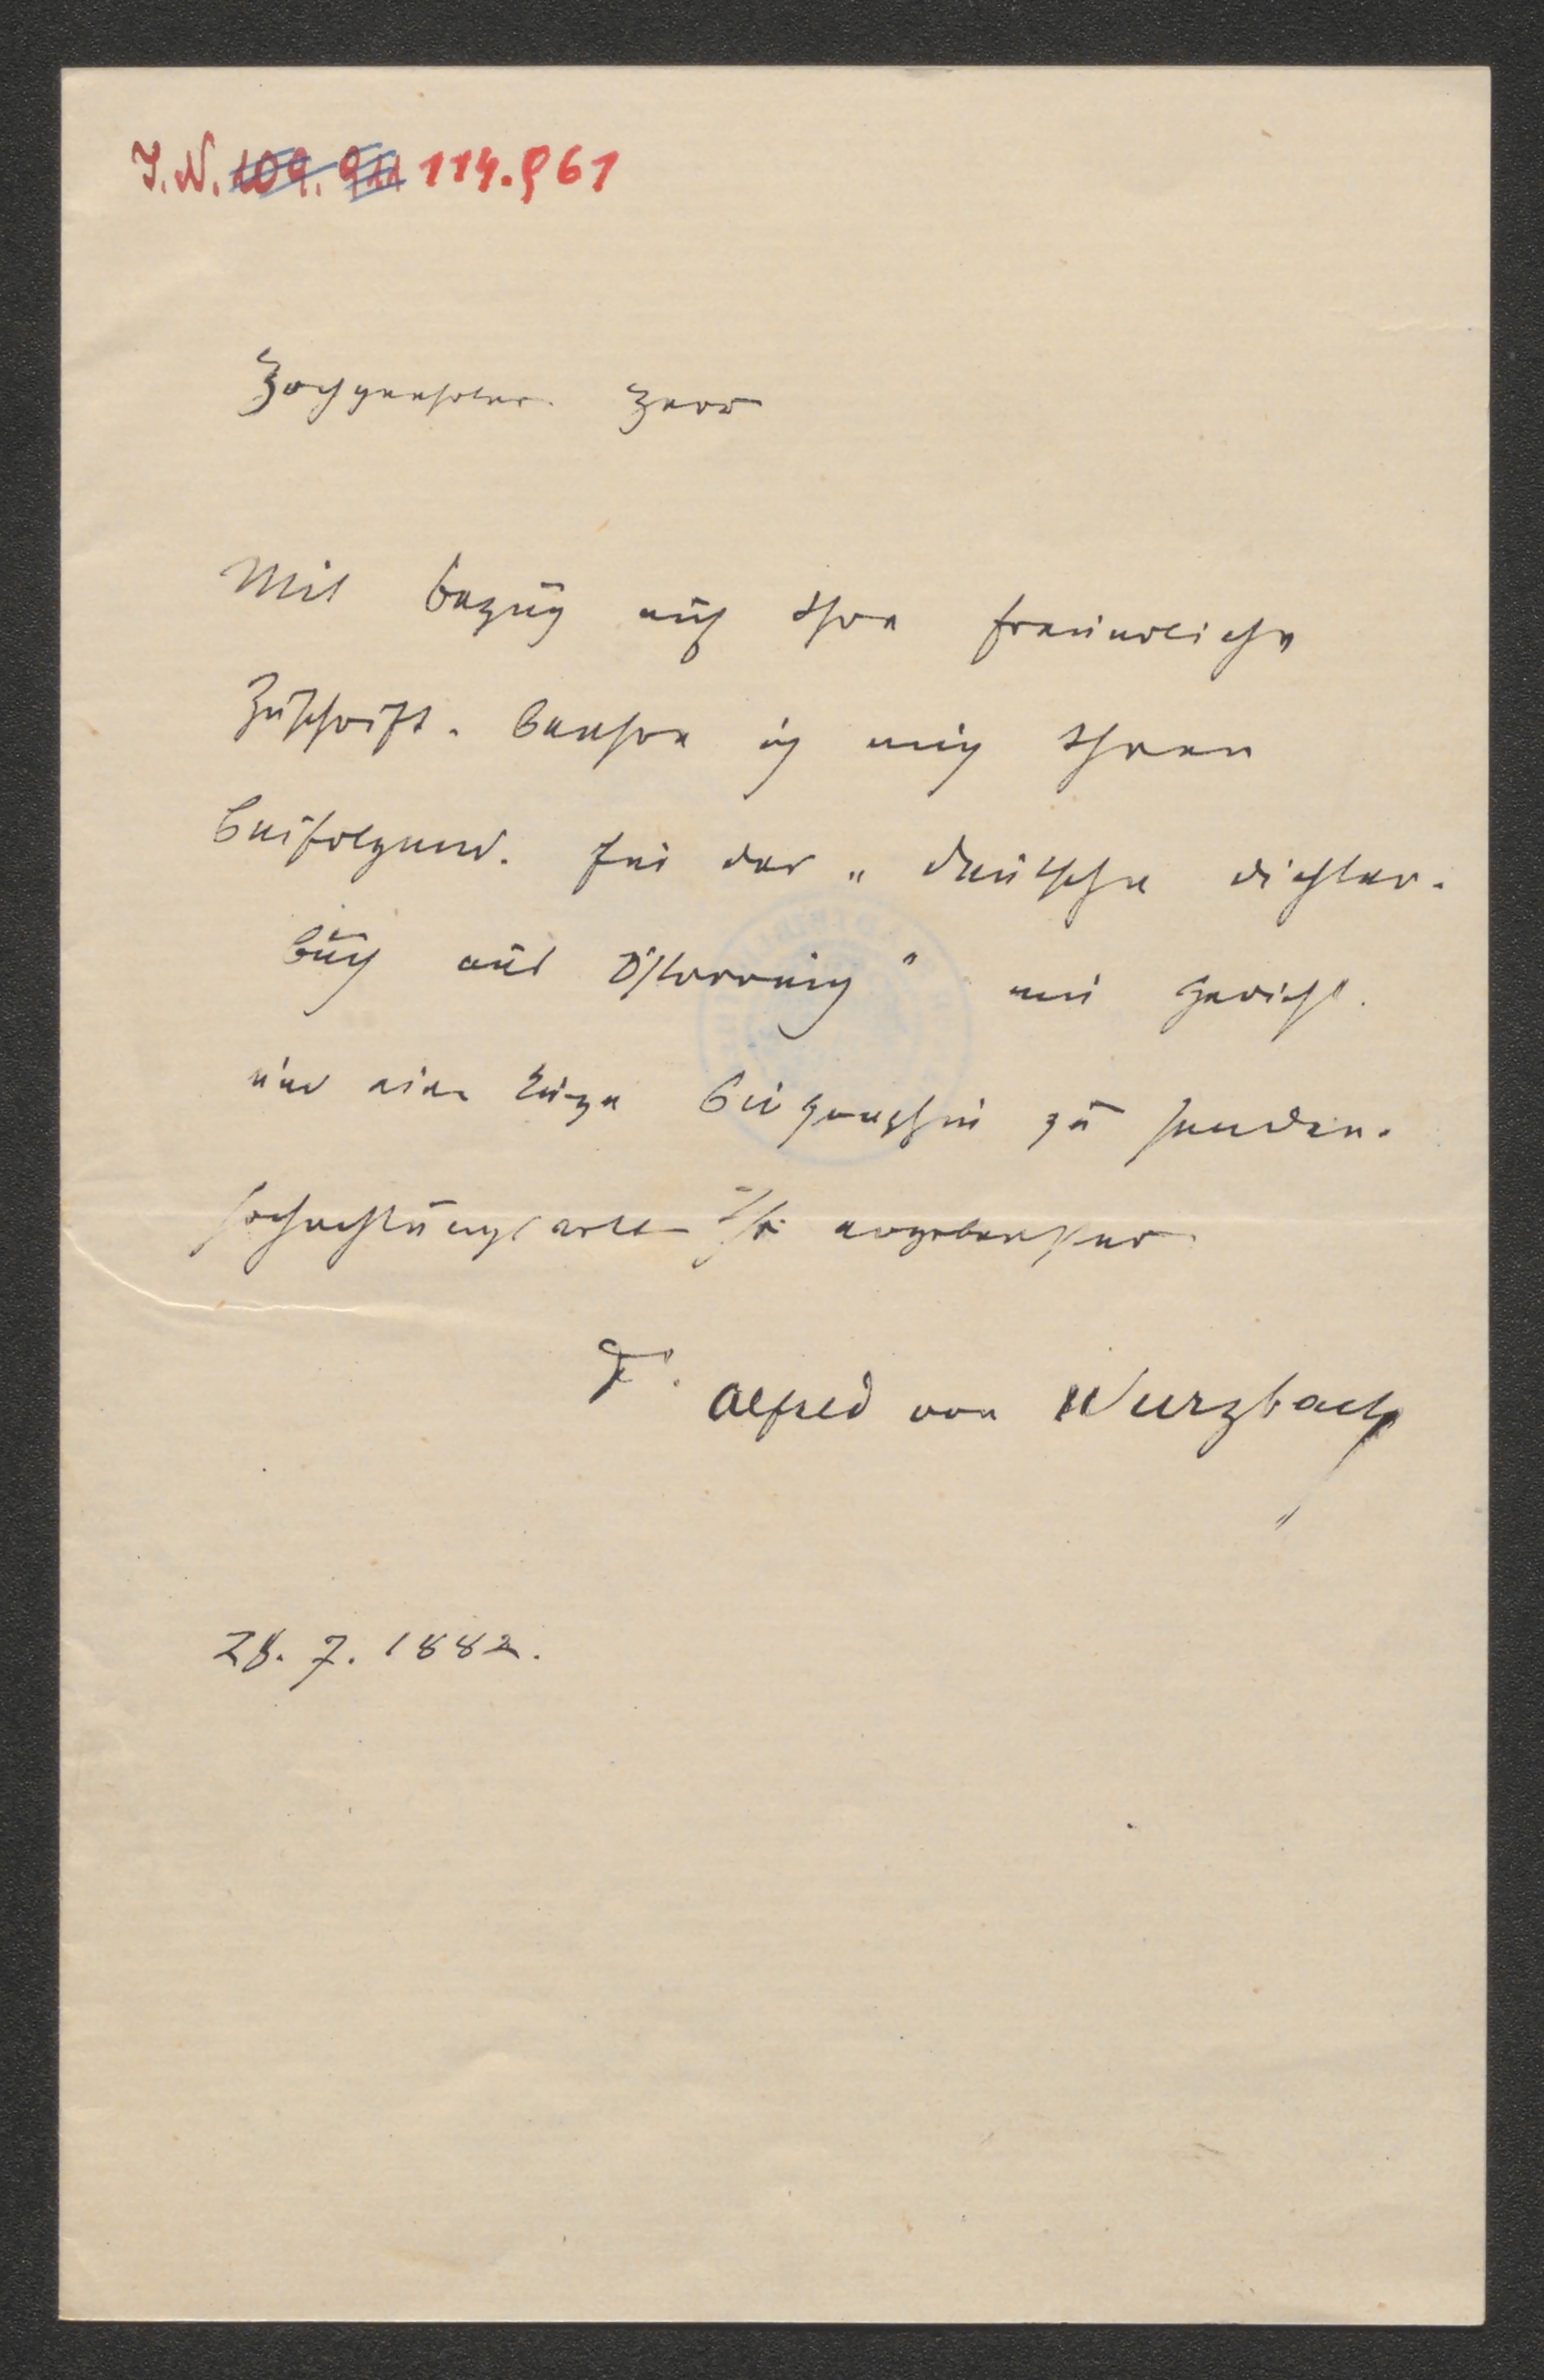 I.N. 109.911 114.961
Hochgeehrter Herr
Mit bezug auf Ihre freundliche
Zuschrift. beehre ich mich Ihnen
beifolgend. für das „deutsche dichter-
buch aus Österreich" ein gedicht.
und eine kurze biografie zu senden.
hochachtungsvoll Ihr ergebenster
Dr. Alfred von Wurzbach
28. 7. 1882.